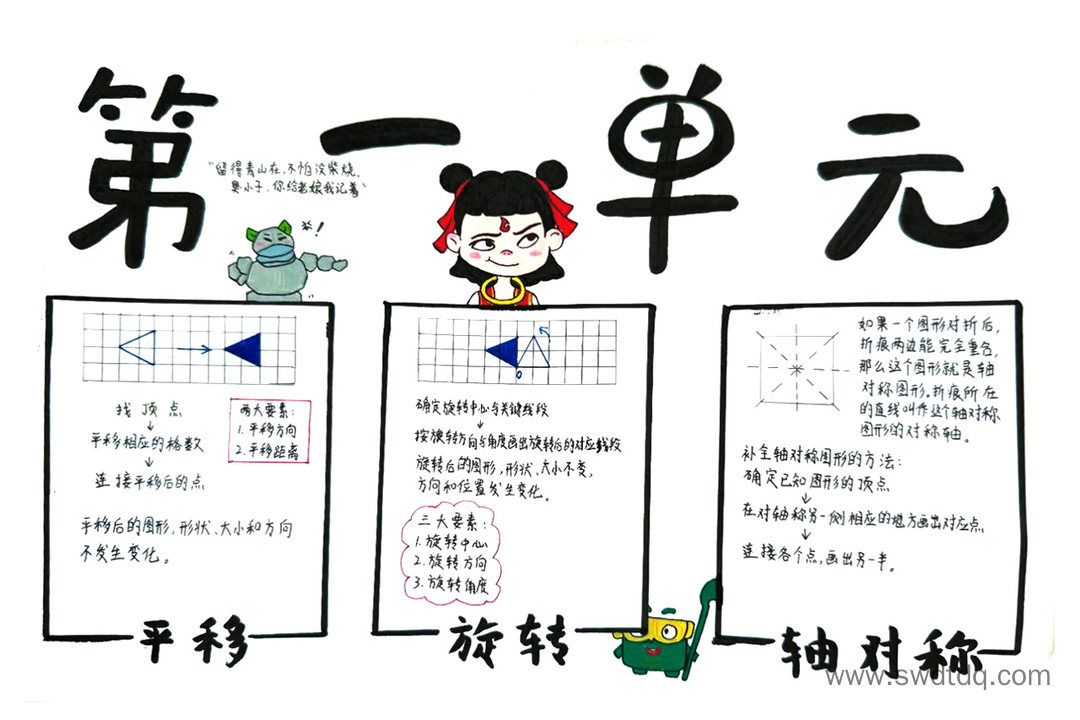 第一单元
"留得青山在,不怕没柴烧.
臭小子,你给老娘我记着"
!
找顶点
↓
平移相应的格数
↓
连接平移后的点
两大要素:
1.平移方向
2.平移距离
平移后的图形,形状、大小和方向
不发生变化。
平移
0
确定旋转中心与关键线段
↓
按旋转方向与角度画出旋转后的对应线段
旋转后的图形,形状、大小不变,
方向和位置发生变化。
三大要素:
1.旋转中心
2.旋转方向
3.旋转角度
旋转
如果一个图形对折后,
折痕两边能完全重合,
那么这个图形就是轴
对称图形.折痕所在
的直线叫作这个轴对称
图形的对称轴。
补全轴对称图形的方法:
确定已知图形的顶点
↓
在对轴称另一侧相应的地方画出对应点
↓
连接各个点,画出另一半。
轴对称
www.swdtdq.com